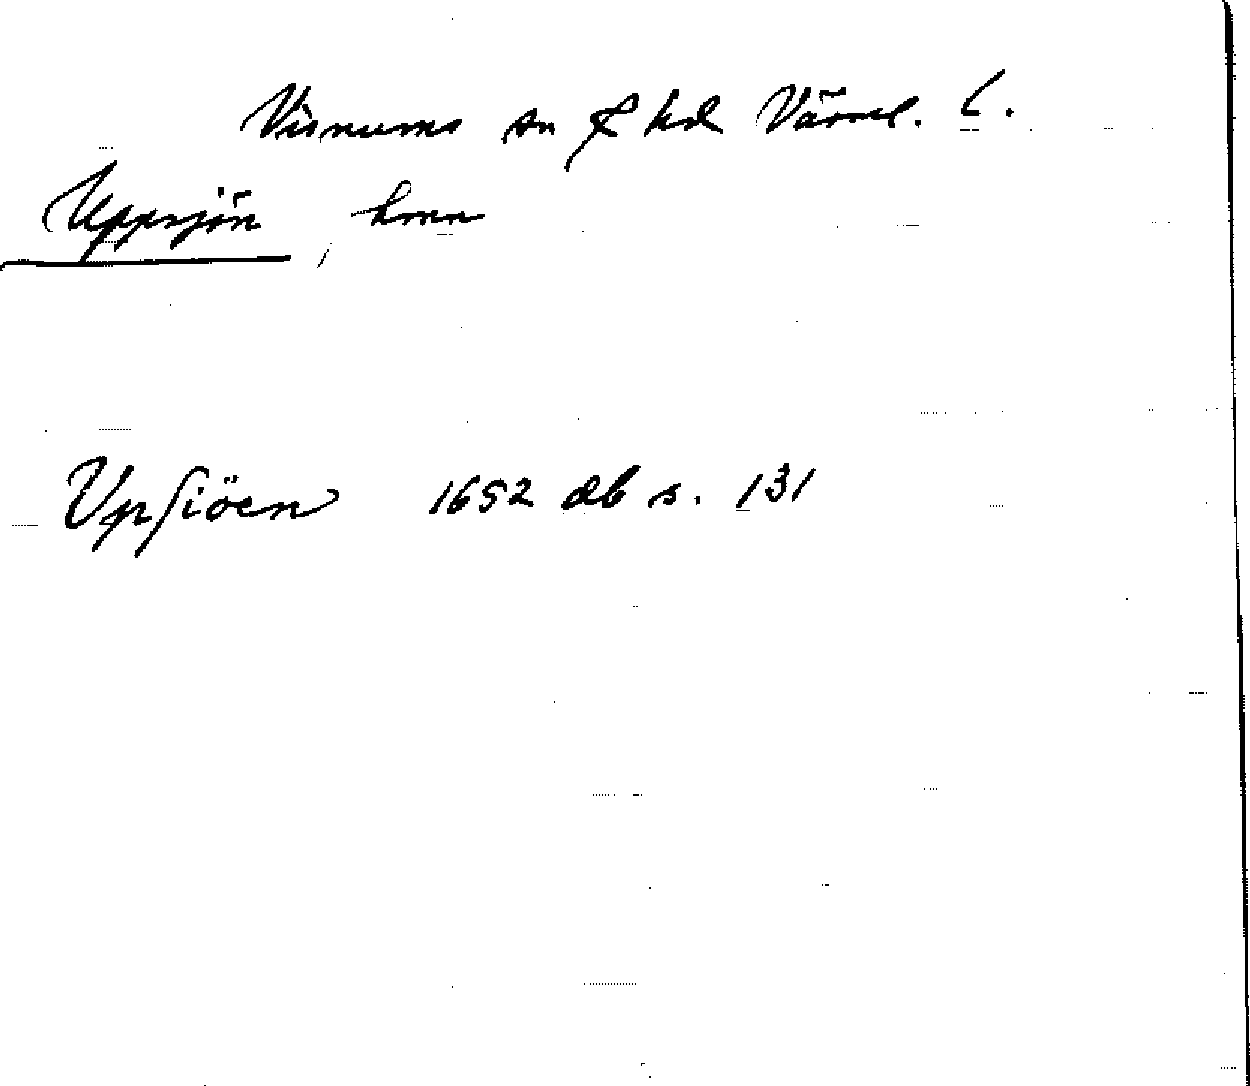 Visnums sn & hd Värml. l.
Uppsjön, hmn
Vpsiöen 1652 db s. 131